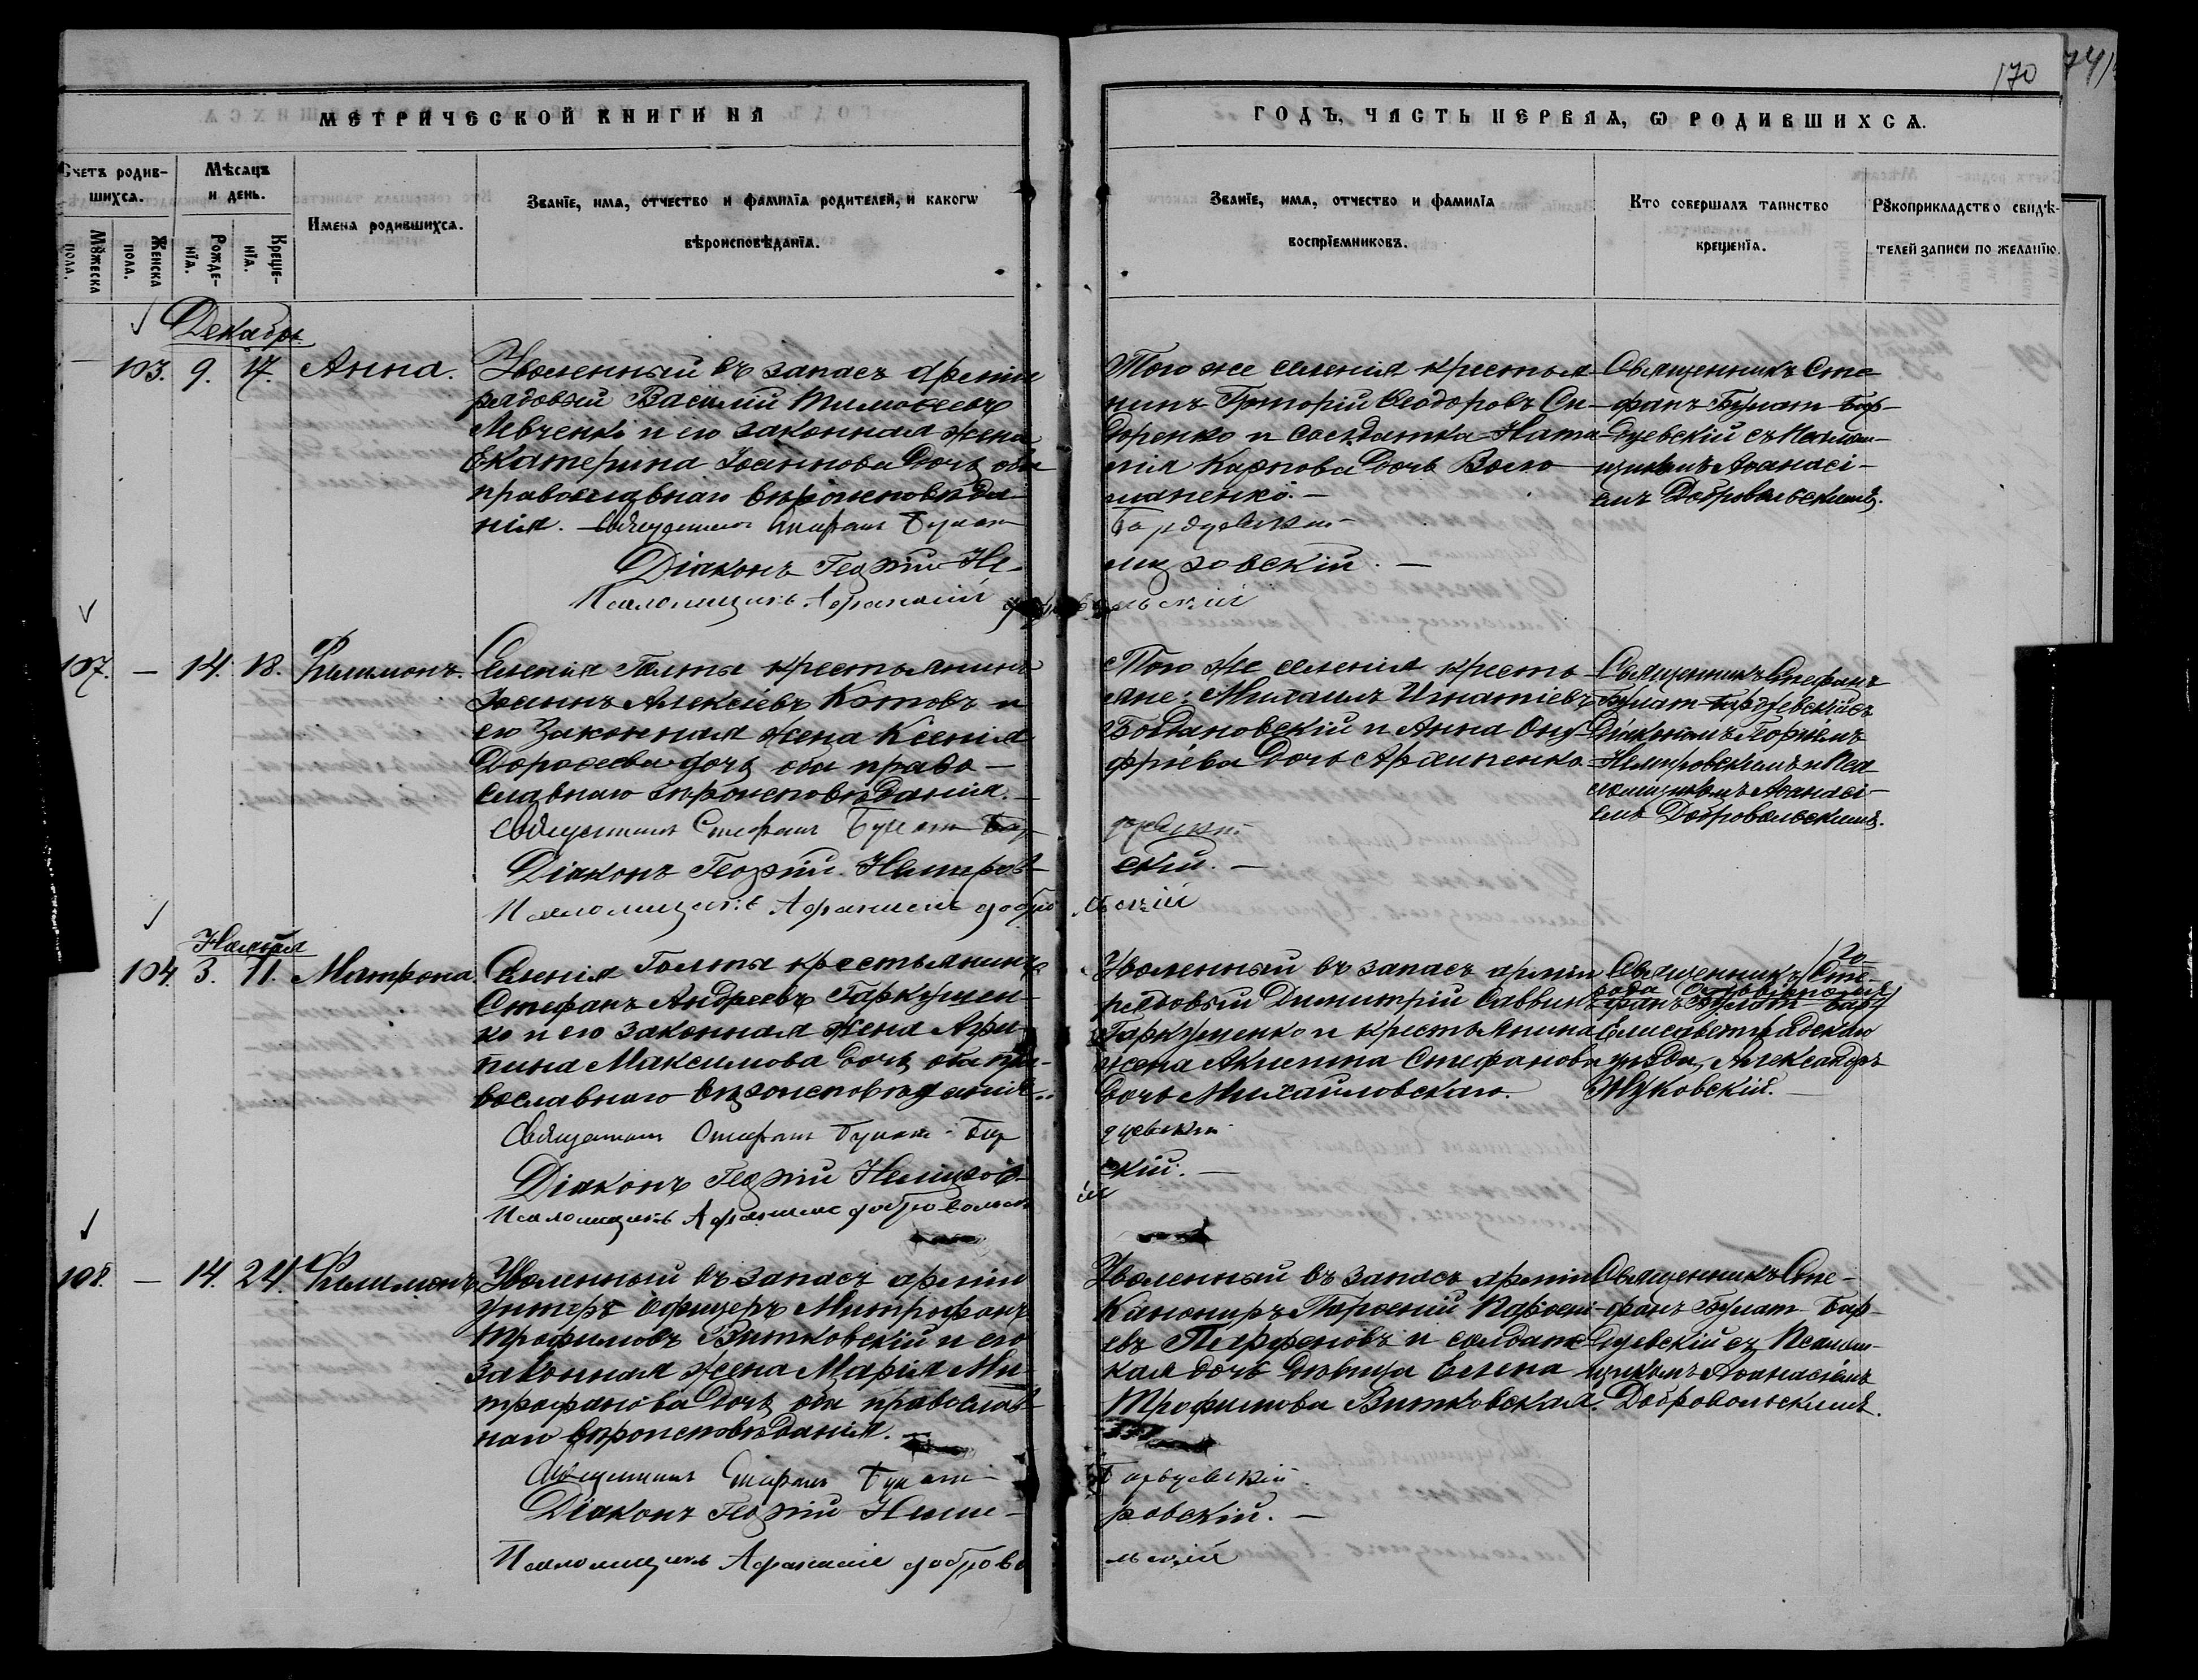 170
МЕТРИЧЕСКОЙ КНИГИ НА
ГОДЪ, ЧАСТЬ ПЕРВАѦ, Ѡ РОДИВШИХСѦ.
Счетъ родив-
шихсѧ.
Мѣсѧцъ
и день.
Мꙋжеска
пола.
Женска
пола.
Рожде-
нїѧ.
Креще-
нїѧ.
Имена родившихсѧ.
Званїе, имѧ, отчество и фамилїѧ родителей, и какогѡ
вѣроисповѣданїѧ.
Званїе, имѧ, отчество и фамилїѧ
воспрїемниковъ.
Кто совершалъ таинство
крещенїѧ.
Рꙋкоприкладство свидѣ-
телей записи по желанїю.
Декабрь
103. 9. 17. Анна.
Уволенный въ запасъ арміи
рядовый Василій Тимоѳеевъ
Левченко и его законная жена
Екатерина Іоаннова дочь, оба
православнаго вѣроисповѣда-
нія. Священникъ Стефанъ Булат-
Діаконъ Георгій Не-
Псаломщикъ Афанасій
Того же селенія крестья-
нинъ Григорій Ѳеодоровъ Си-
доренко и солдатка Ната-
лія Карпова дочь Воло-
шаненко.
Бардуевскій
мировскій.
льскій
Священникъ Сте-
фанъ Булат-Бар-
дуевскій съ Псалом-
щикомъ Аѳанасі-
емъ Добровольскимъ.
107. — 14. 18. Филимонъ.
Селенія Голты крестьянинъ
Іоаннъ Алексіевъ Котовъ и
его законная жена Ксенія
Дороѳеева дочь, оба право-
славнаго вѣроисповѣданія.
Священникъ Стефанъ Булат-Бар-
Діаконъ Георгій Немиров-
Псаломщикъ Афанасій Добро
Того же селенія кресть-
яне: Михаилъ Игнатіевъ
Богдановскій и Анна Ону-
фріева дочь Архипенко
дуевскій
скій.
льскій
Священникъ Стефанъ
Булат-Бардуевскій съ
Діакономъ Георгіемъ
Немировскимъ и Пса-
ломщикомъ Аѳанасі-
емъ Добровольскимъ.
Ноября
104. 3. 11. Матрона.
Селенія Голты крестьянинъ
Стефанъ Андреевъ Гаркушен-
ко и его законная жена Агри-
пина Максимова дочь, оба пра-
вославнаго вѣроисповѣданія.
Священникъ Стефанъ Булат-Бар
Діаконъ Георгій Немиров-
Псаломщикъ Афанасій Добровольск
Уволенный въ запасъ арміи
рядовый Димитрій Саввинъ
Гаркушенко и крестьянина
жена Акилина Стефанова
дочь Михайловскаго.
дуевскій
скій.
ій
Священникъ Сте-
фанъ Булат-Бар
Елисаветградскаго
уѣзда, Александръ
Жуковскій.
108. — 14. 24. Филимонъ
Уволенный въ запасъ арміи
унтеръ офицеръ Митрофанъ
Трофимовъ Витковскій и его
законная жена Марія Ми-
трофанова дочь, оба православ-
наго вѣроисповѣданія.
Священникъ Стефанъ Булат-
Діаконъ Георгій Неми-
Псаломщикъ Афанасій Доброво
Уволенный въ запасъ арміи
Канониръ Парѳеній Парѳені-
евъ Парфеновъ и солдатс-
кая дочь дѣвица Елена
Трофимова Витковская.
Бардуевскій
ровскій.
льскій
Священникъ Сте-
фанъ Булат-Бар-
дуевскій съ Псалом-
щикомъ Аѳанасіемъ
Добровольскимъ.